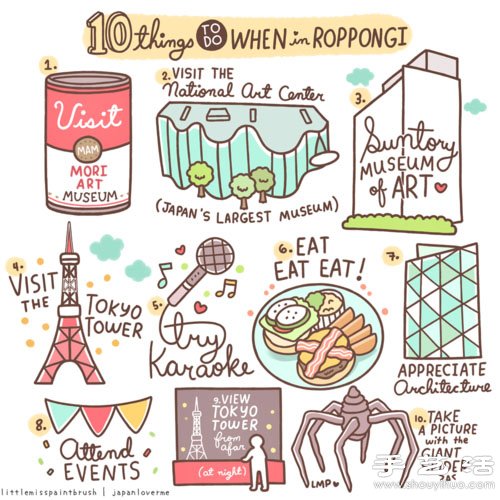 10 things TO DO WHEN in ROPPONGI
1.
Visit
MAM
MORI
ART
MUSEUM
2. VISIT THE
National Art Center
(JAPAN'S LARGEST MUSEUM)
3.
Suntory
MUSEUM
of ART
4.
VISIT
THE
TOKYO
TOWER
5.
try
Karaoke
6. EAT
EAT EAT!
7.
APPRECIATE
Architecture
8.
Attend
EVENTS
9. VIEW
TOKYO
TOWER
from
afar
(at night)
10. TAKE
A PICTURE
with the
GIANT
LMP
littlemisspaintbrush | japanloverme
www.shouyihuo.com